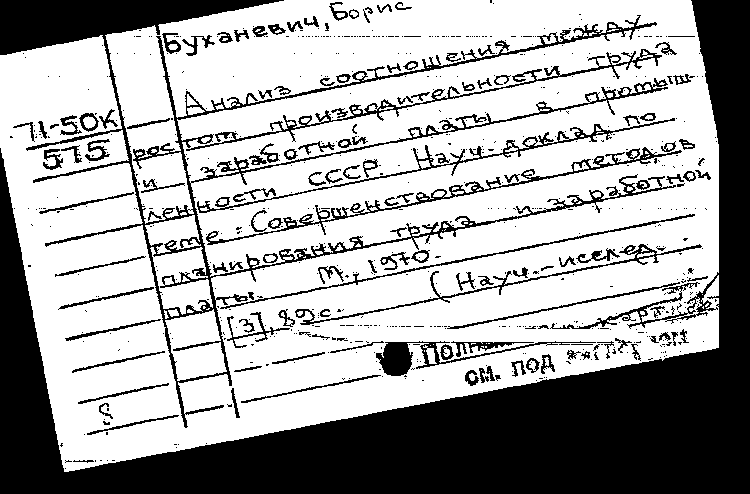 Буханевич, Борис
Анализ соотношения между
71-50к
575
ростом производительности труда
и заработной платы в промыш-
ленности СССР. Науч. доклад по
теме: Совершенствование методов
планирования труда и заработной
платы. М., 1970.
[3], 89 с. (Науч.-исслед.
см. под
8